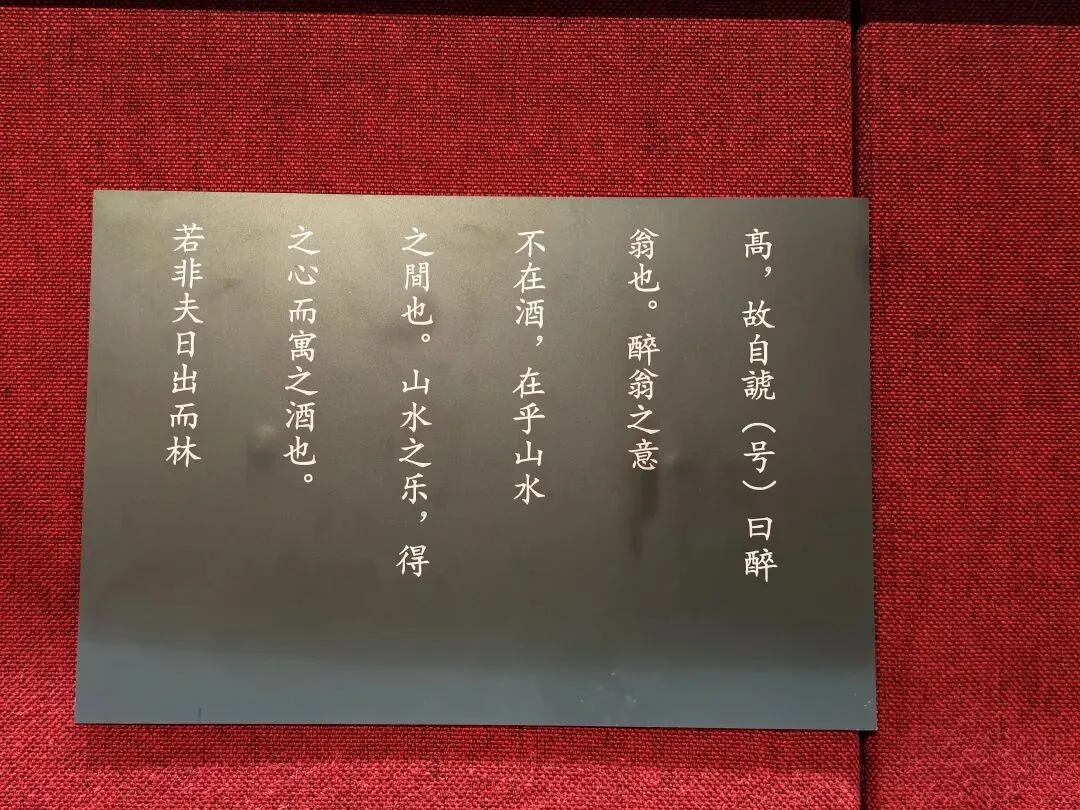 髙，故自諕（号）曰醉
翁也。醉翁之意
不在酒，在乎山水
之間也。山水之乐，得
之心而寓之酒也。
若非夫日出而林